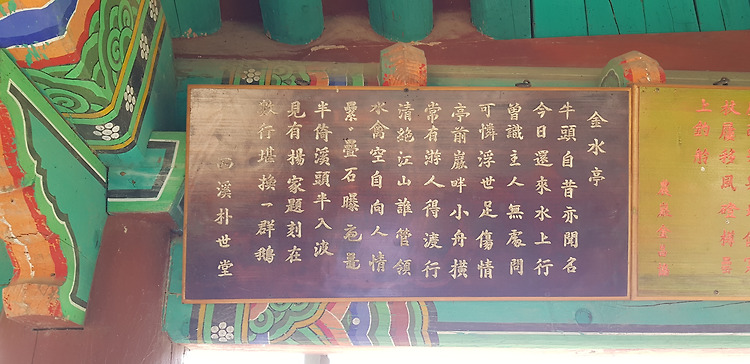 金水亭
牛頭自昔亦聞名
今日還來水上行
曾識主人無處問
可憐浮世足傷情
亭前巖畔小舟橫
常有游人得渡行
清絶江山誰管領
水禽空自向人情
纍〻疊石曝黿鼉
半倚溪頭半入波
見有楊家題刻在
數行堪換一群鵝
西溪朴世堂